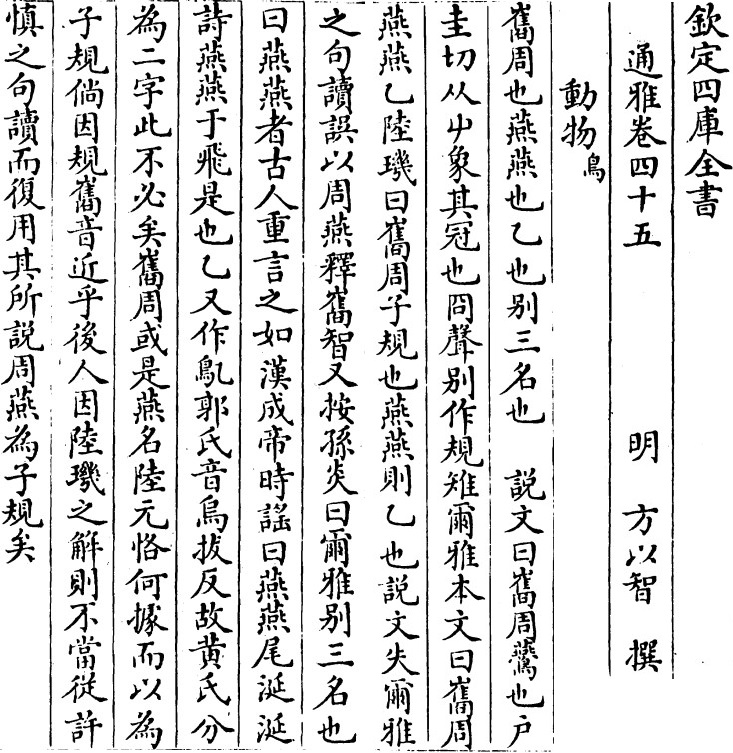 欽定四庫全書
通雅卷四十五
明 方以智 撰
動物鳥
巂周也燕燕也乙也别三名也 說文曰巂周鷰也户
圭切从屮象其冠也冏聲别作規雉爾雅本文曰巂周
燕燕乙陸璣曰巂周子規也燕燕則乙也説文失爾雅
之句讀誤以周燕釋巂智又按孫炎曰爾雅别三名也
曰燕燕者古人重言之如漢成帝時謡曰燕燕尾涎涎
詩燕燕于飛是也乙又作鳦郭氏音烏拔反故黄氏分
為二字此不必矣巂周或是燕名陸元恪何據而以為
子規倘因規巂音近乎後人因陸璣之解則不當從許
慎之句讀而復用其所説周燕為子規矣